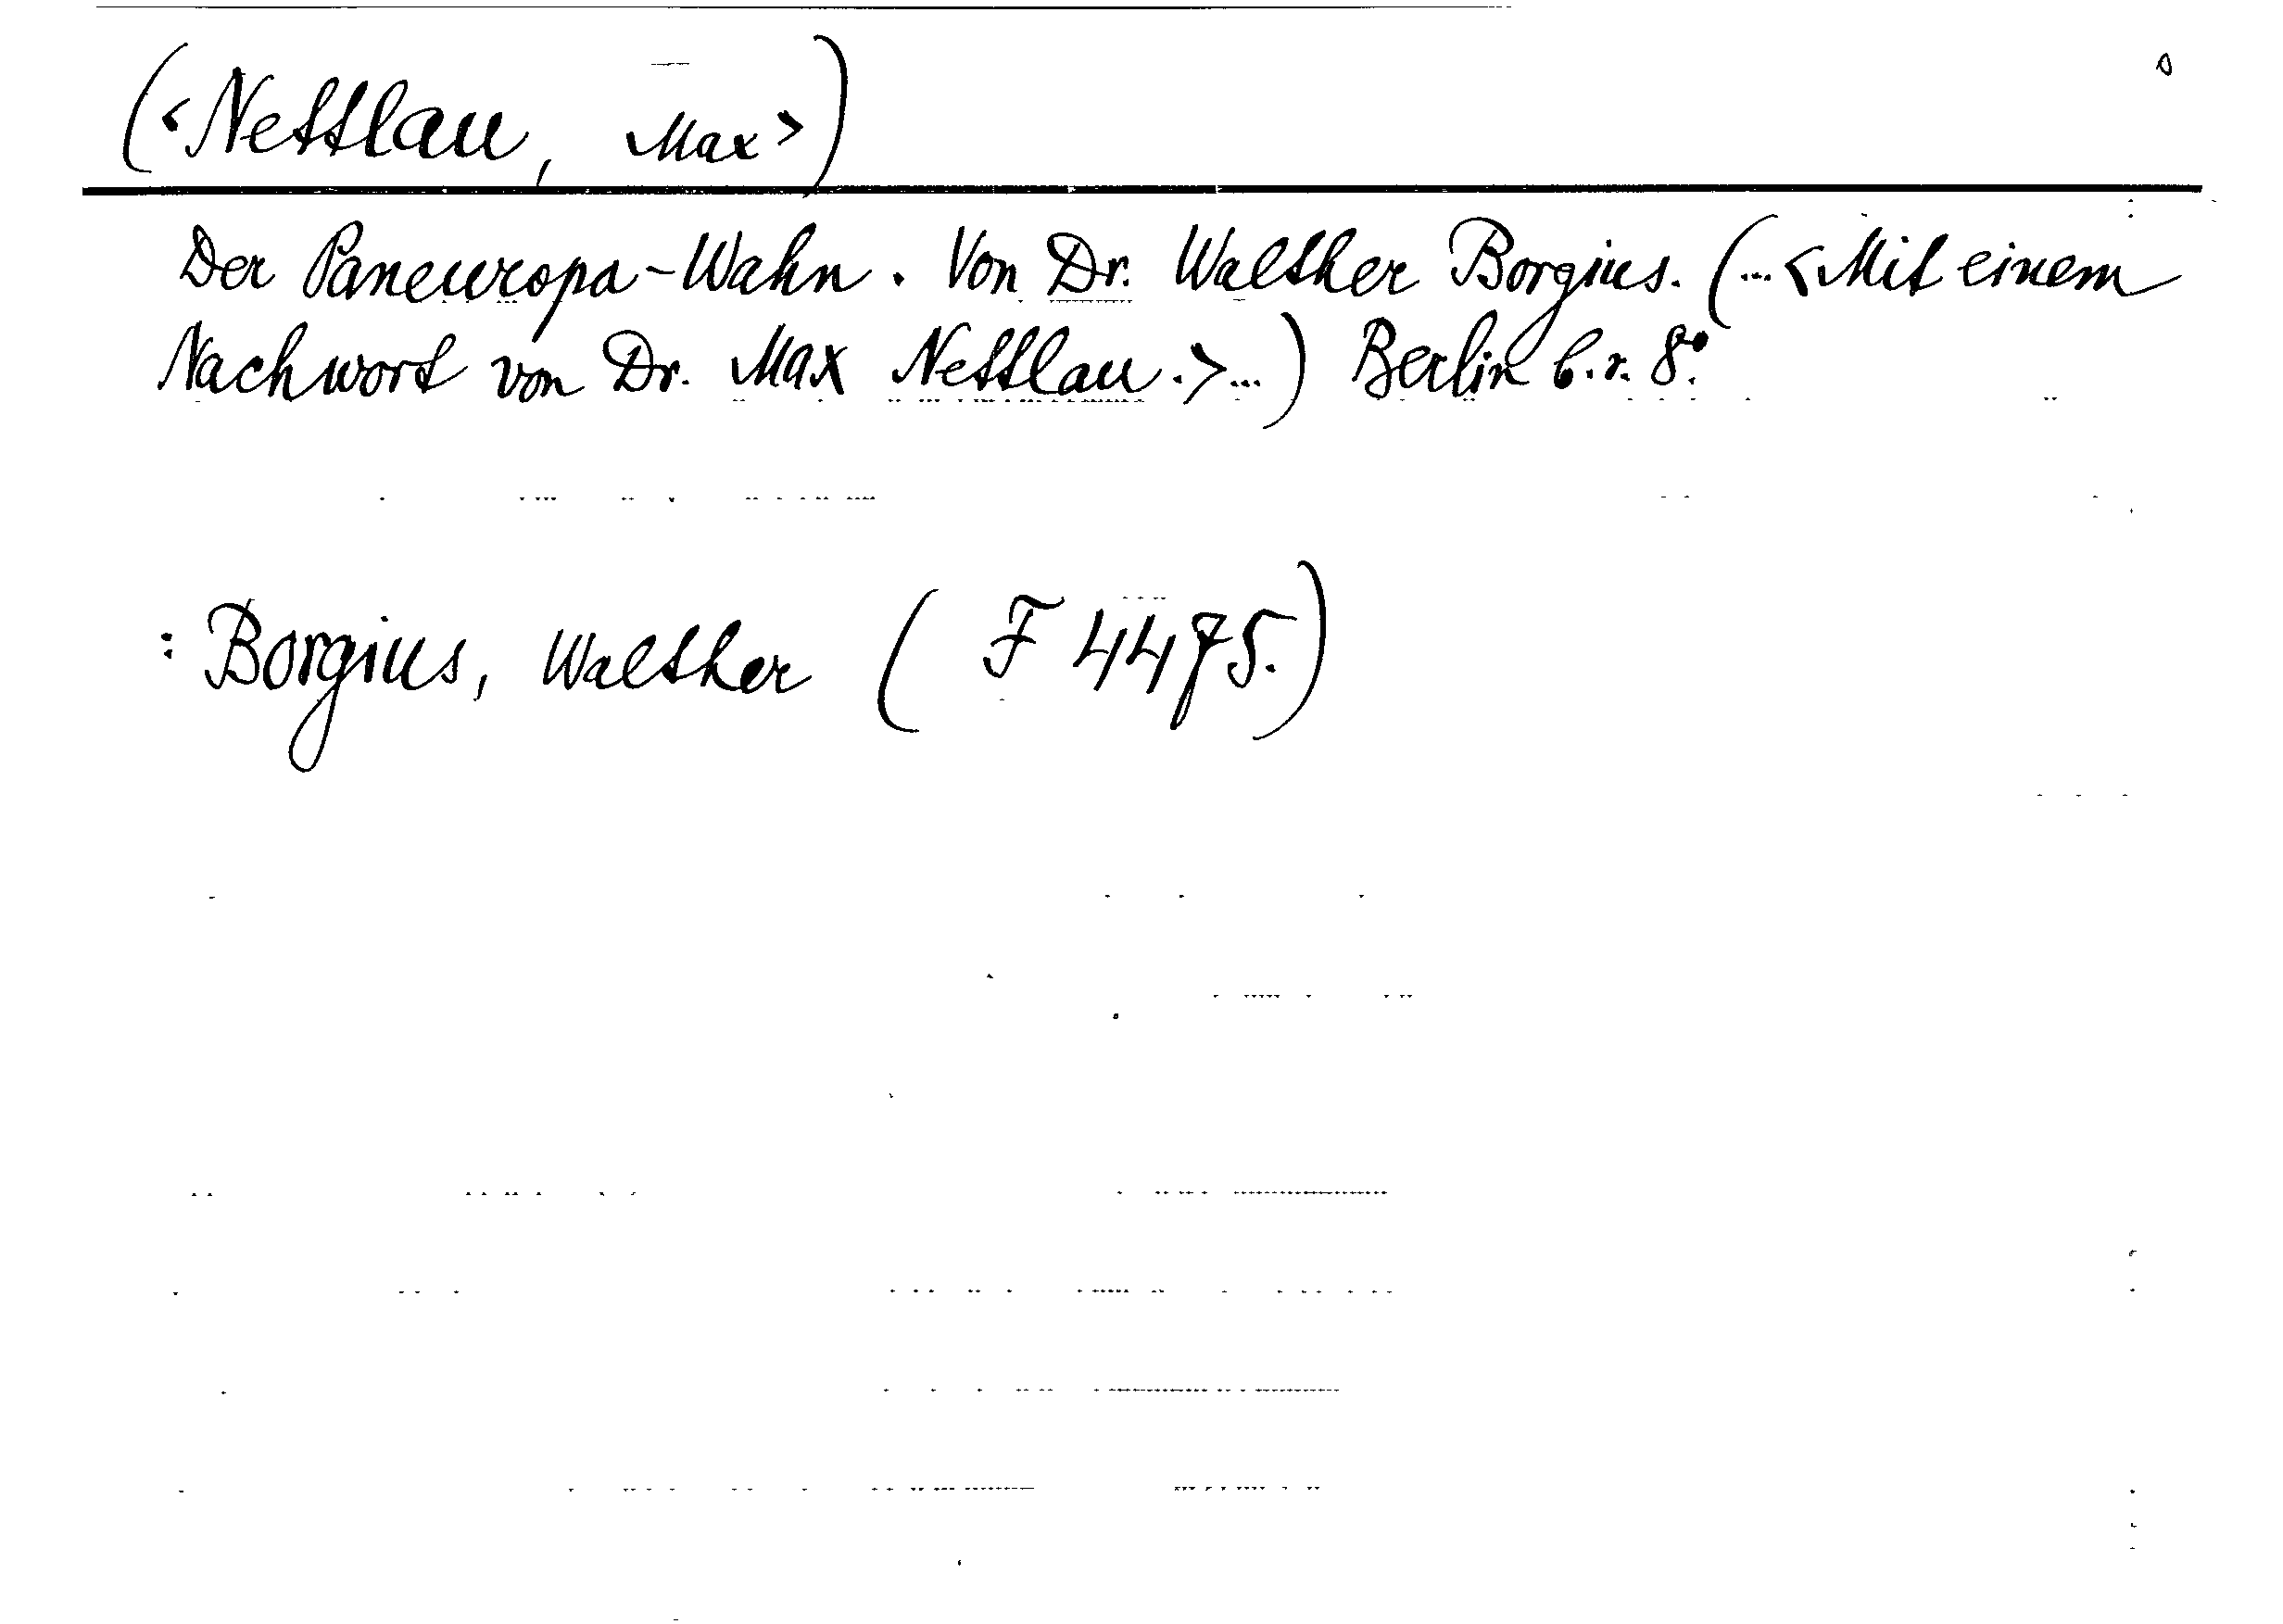 (<Nettlau, Max>)
Der Paneuropa-Wahn. Von Dr. Walther Borgius. (...<Mit einem
Nachwort von Dr. Max Nettlau.>...) Berlin b.r. 8°.
: Borgius, Walther ( F 4475.)